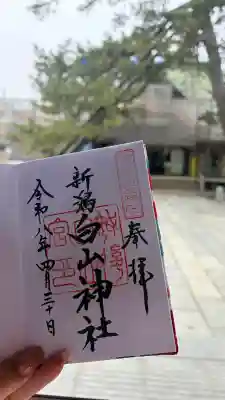 奉拝
新潟白山神社
令和八年四月三十日